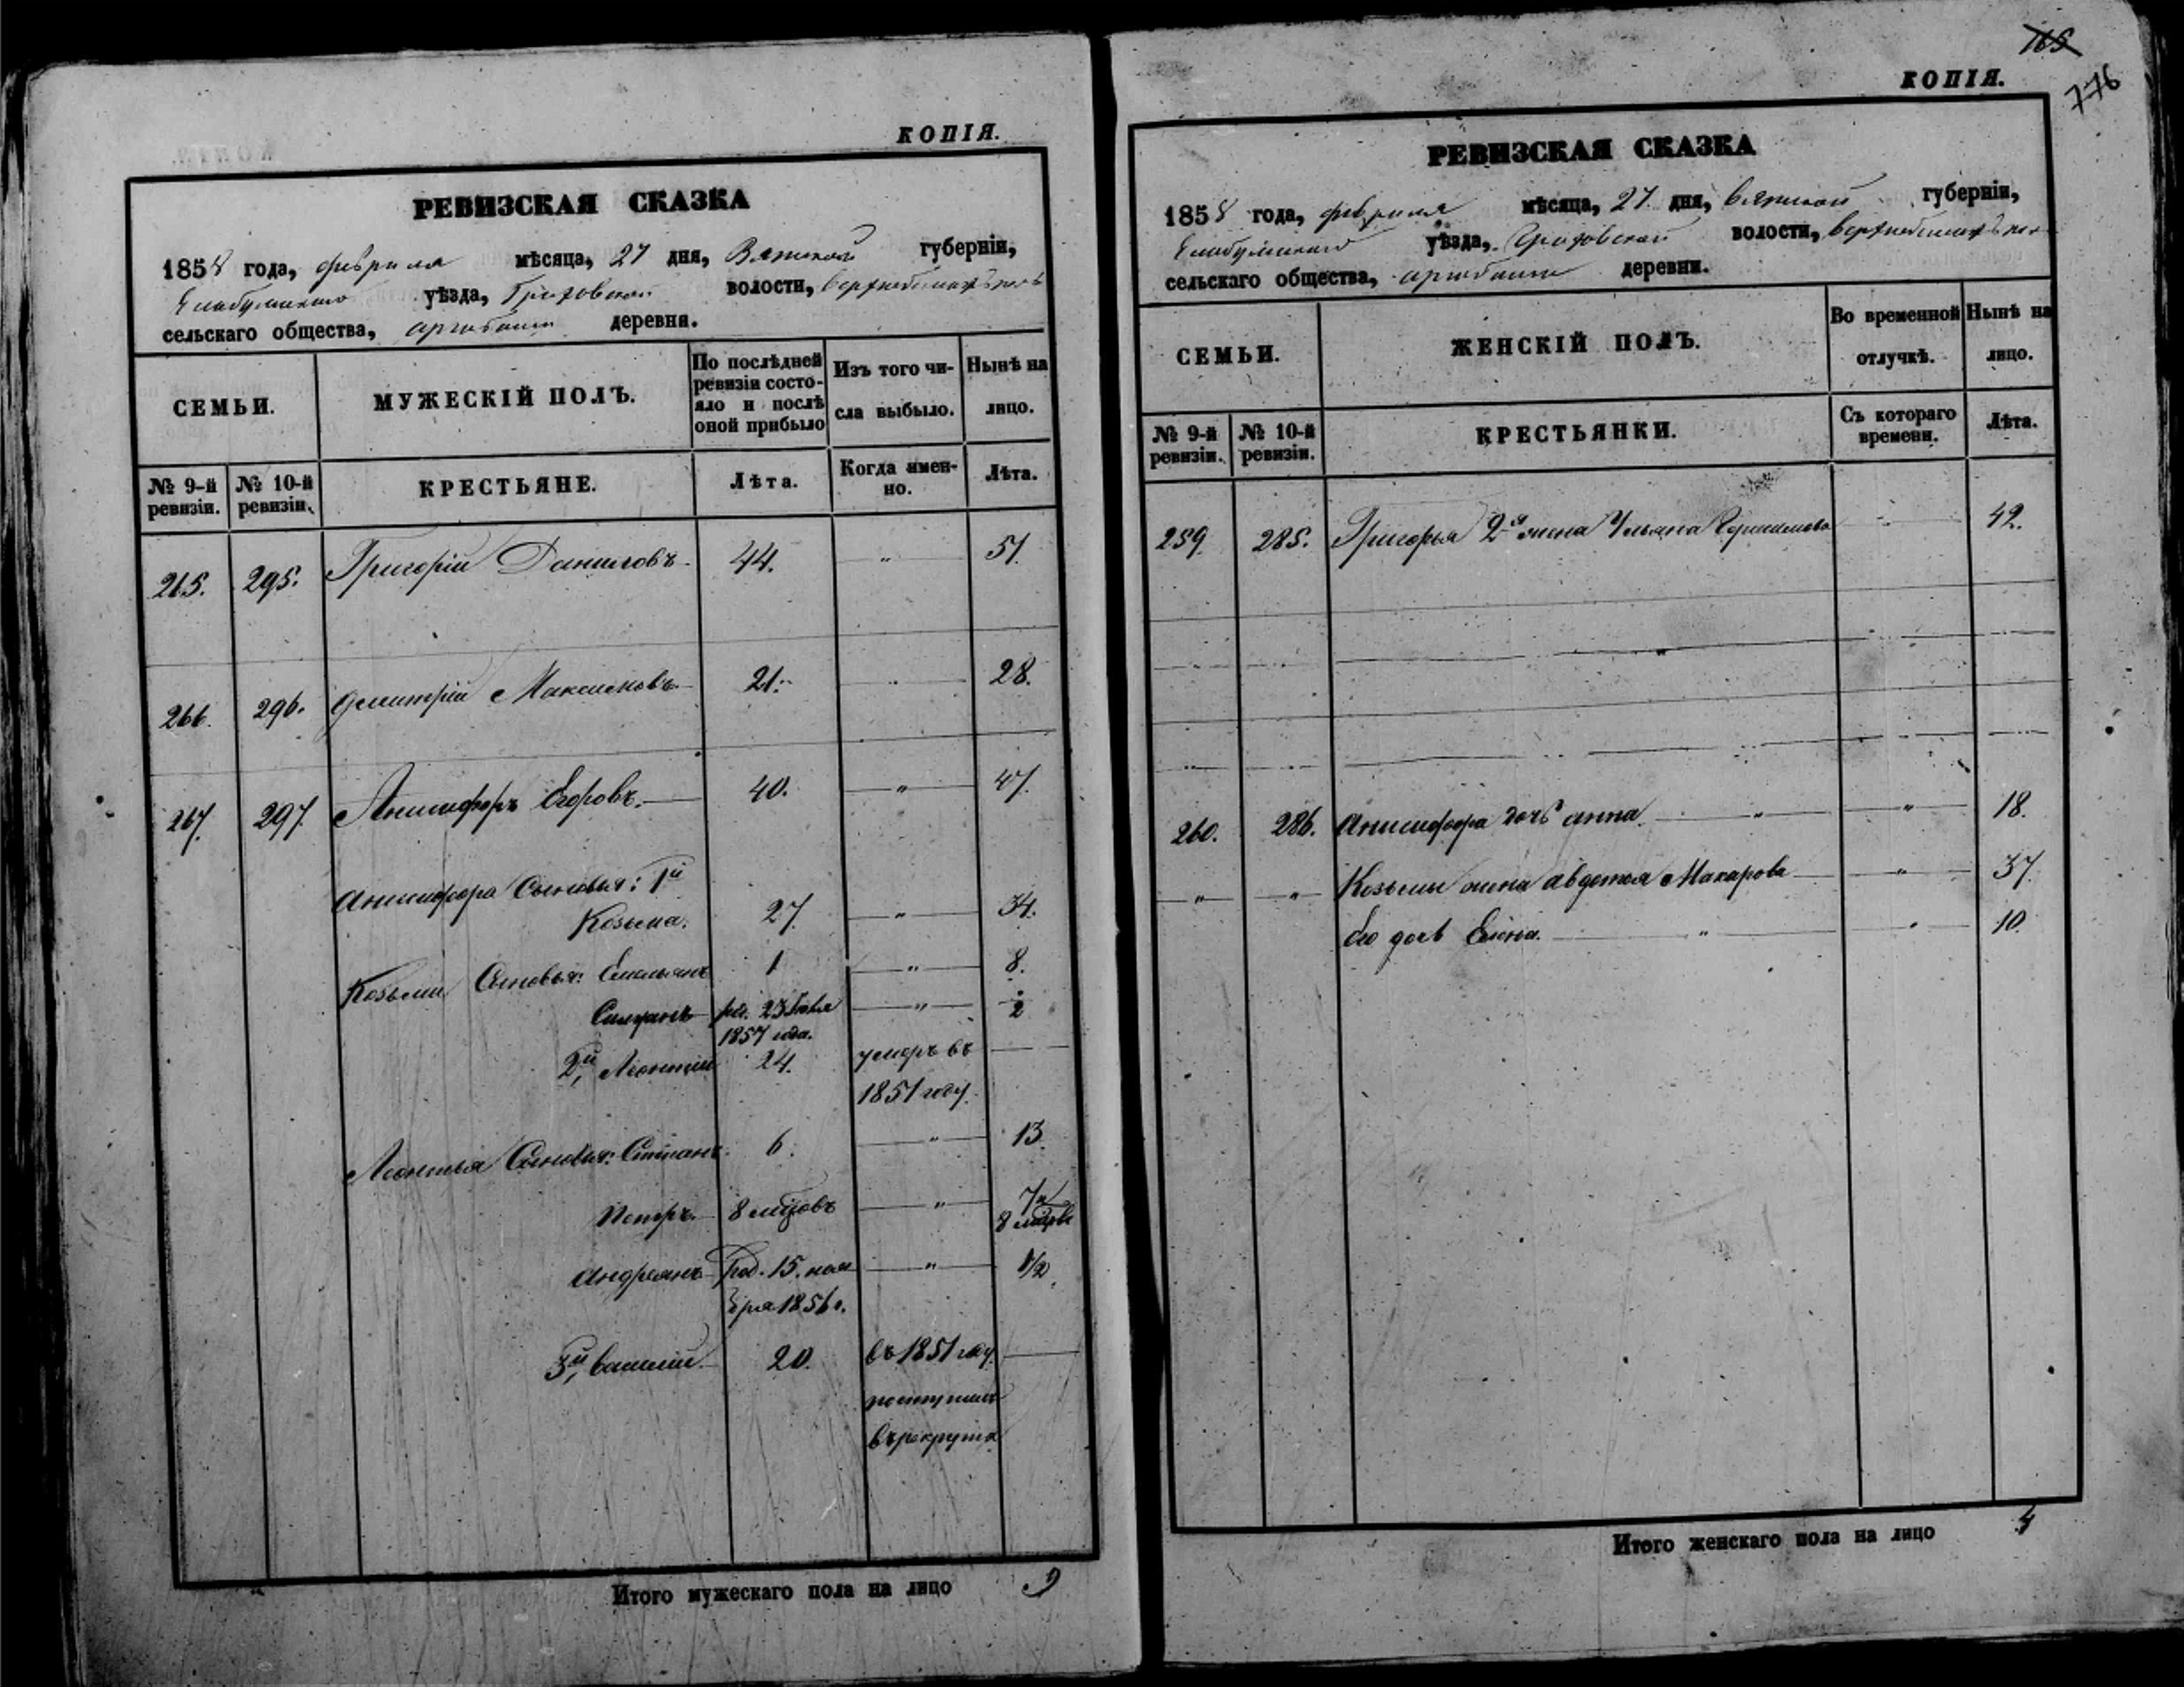 КОПІЯ.
РЕВИЗСКАЯ СКАЗКА
1858 года, февраля мѣсяца, 27 дня, Вятской губерніи,
Елабужскаго уѣзда, Граховской волости,
сельскаго общества, деревни.
СЕМЬИ.
МУЖЕСКІЙ ПОЛЪ.
По послѣдней
ревизіи состо-
яло и послѣ
оной прибыло
Изъ того чи-
сла выбыло.
Нынѣ на
лицо.
№ 9-й
ревизіи.
№ 10-й
ревизіи.
КРЕСТЬЯНЕ.
Лѣта.
Когда имен-
но.
Лѣта.
265. 295. Григорій Даниловъ 44. „ 51.
266. 296. Дмитрій Максимовъ 21. „ 28.
267. 297. Анисифоръ Егоровъ. 40. „ 47.
Анисифора Сыновья: 1й
Козьма. 27. „ 34.
Козьмы Сыновья: Емельянъ 1 „ 8.
род. 23
1857 года. „ 2
2й, Леонтій 24. умеръ въ
1851 году.
Леонтья Сыновья: Степанъ. 6. „ 13.
Петръ. 8 мѣсцовъ „ 7 и
8 мѣсцв
Андреянъ Род. 15. ноя „ 1/2
бря 1856 г.
3й, Василій. 20. въ 1851 году.
поступилъ
въ рекруты
Итого мужескаго пола на лицо 9
165
776
КОПІЯ.
РЕВИЗСКАЯ СКАЗКА
1858 года, февраля мѣсяца, 27 дня, Вятской губерніи,
Елабужскаго уѣзда, Граховской волости,
сельскаго общества, деревни.
СЕМЬИ.
ЖЕНСКІЙ ПОЛЪ.
Во временной
отлучкѣ.
Нынѣ на
лицо.
№ 9-й
ревизіи.
№ 10-й
ревизіи.
КРЕСТЬЯНКИ.
Съ котораго
времени.
Лѣта.
259. 285. Григорья 2я жена Ульяна Герасимова 42.
260. 286. Анисифора дочь Анна. „ 18.
„ „ Козьмы жена Авдотья Макарова „ 37.
Его дочь Елена. „ 10.
Итого женскаго пола на лицо 4